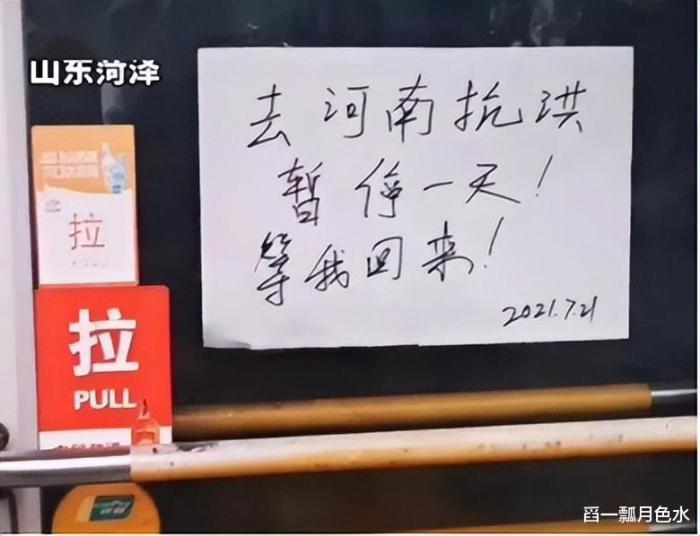 山东菏泽
去河南抗洪
暂停一天！
等我回来！
2021.7.21
拉
拉
PULL
舀一瓢月色水